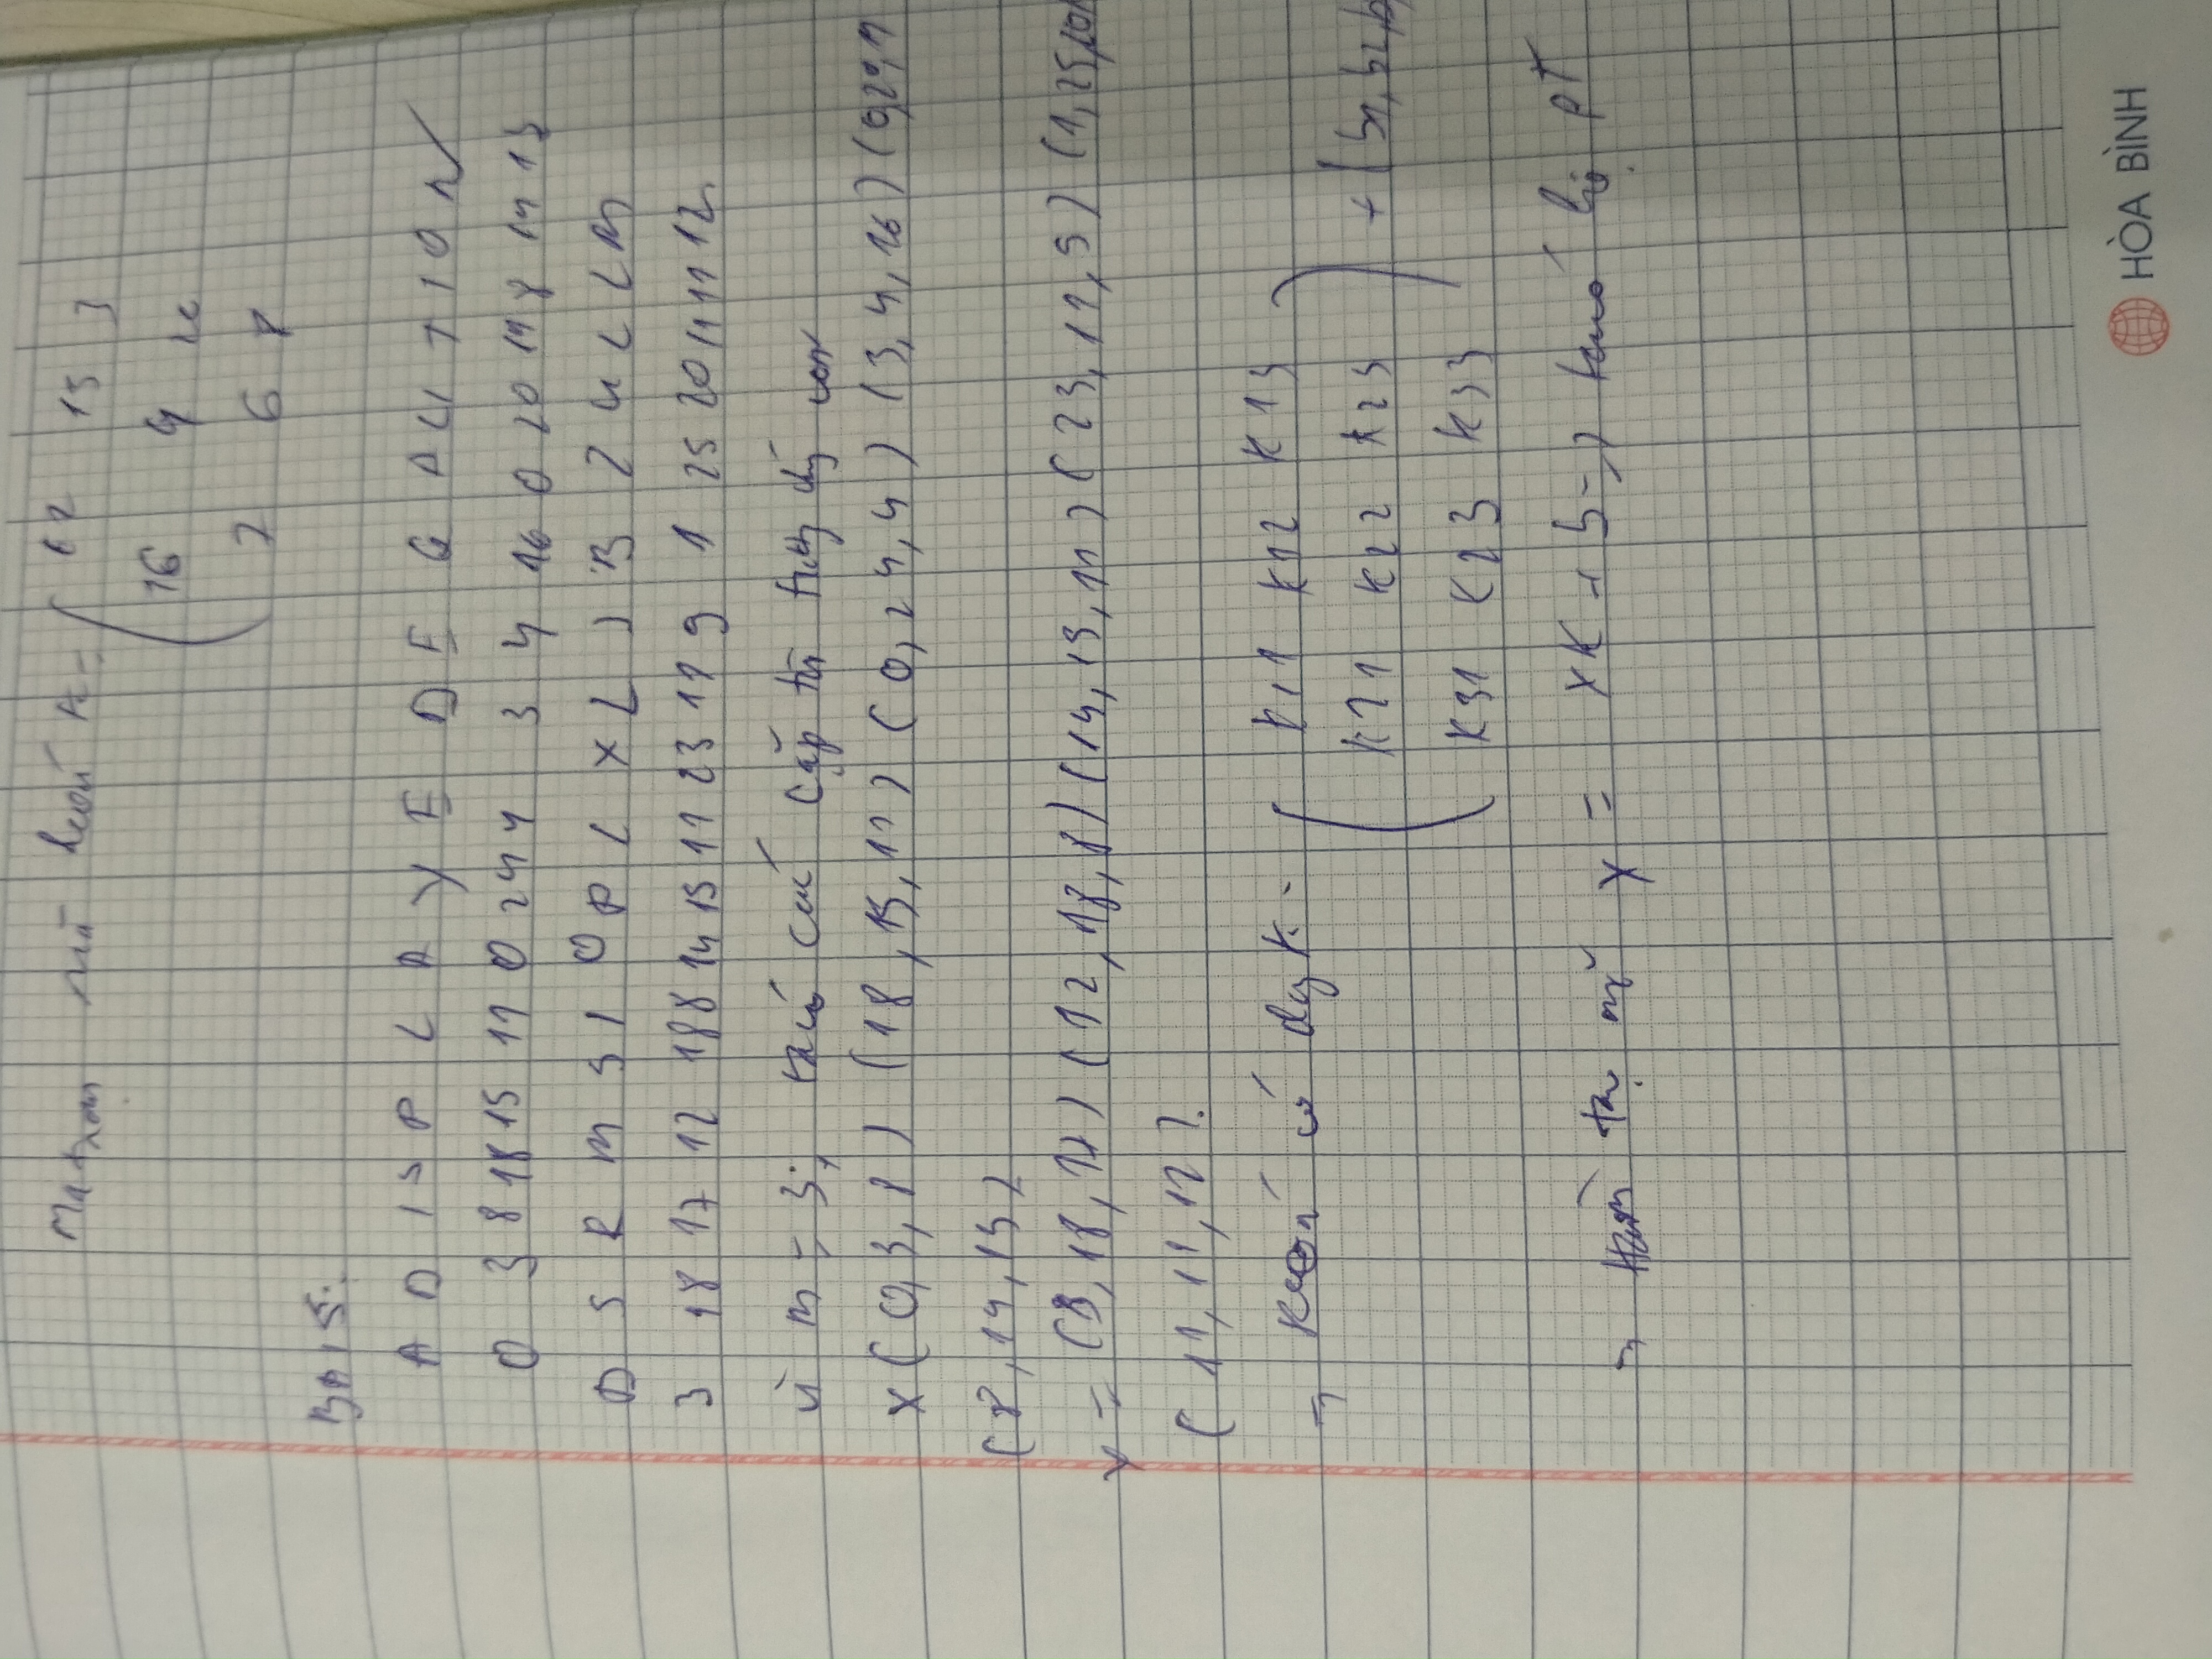 Ma trận mã khoá K = ( 12 15 3
16 9 20
7 6 8
BÀI 5:
A D I S P L A Y E D E Q A U T I O N
0 3 8 18 15 11 0 24 4 3 4 16 0 20 19 8 14 13
D S R M S I O P L X L J B Z U L L M
3 18 17 12 18 8 14 15 11 23 11 9 1 25 20 11 11 12
Vì m = 3, ta có các cặp từ tương ứng
X (0, 3, 8) (18, 15, 11) (0, 24, 4) (3, 4, 16) (0, 20, 1
(8, 14, 13)
Y = (3, 18, 17) (12, 18, 8) (14, 15, 11) (23, 11, 9) (1, 25, 20)
(11, 11, 12)
=> Khoá có dạng K = ( K11 K12 K13
K21 K22 K23 ) + (b1, b2, b
K31 K23 K33
=> Hàm lập mã Y = XK + b => ta có hệ PT
HÒA BÌNH